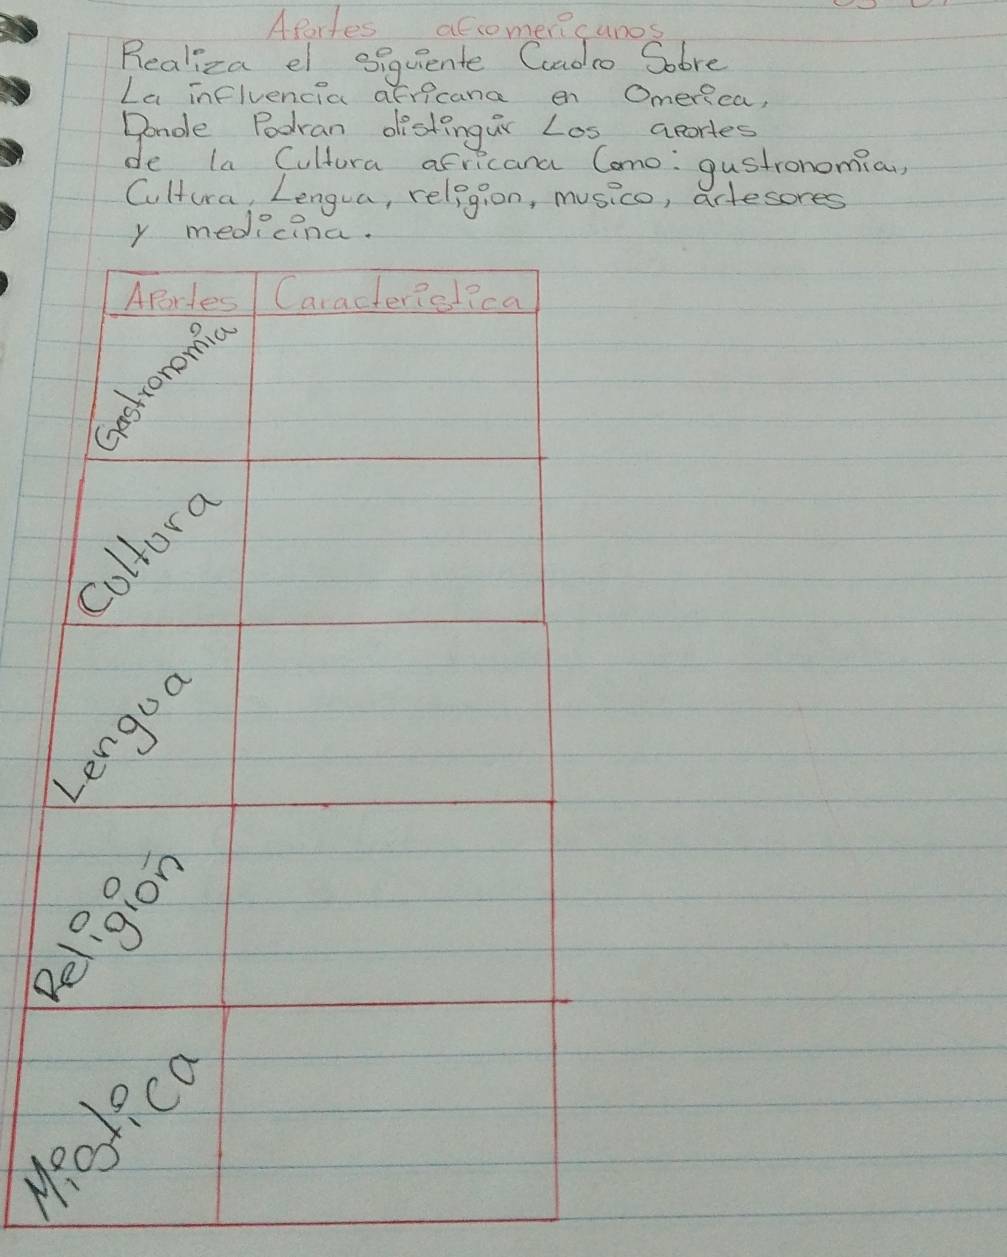 Aportes afromericanos
Realiza el siguiente Cuadro Sobre
La influencia africana en Omerica,
Donde Podran distinguir Los aportes
de la Cultura africana Como: gustronomia,
Cultura, Lengua, religion, musico, artesores
y medicina.
Aportes Caracteristica
Gastronomia
Cultura
Lengua
Religion
Mistica